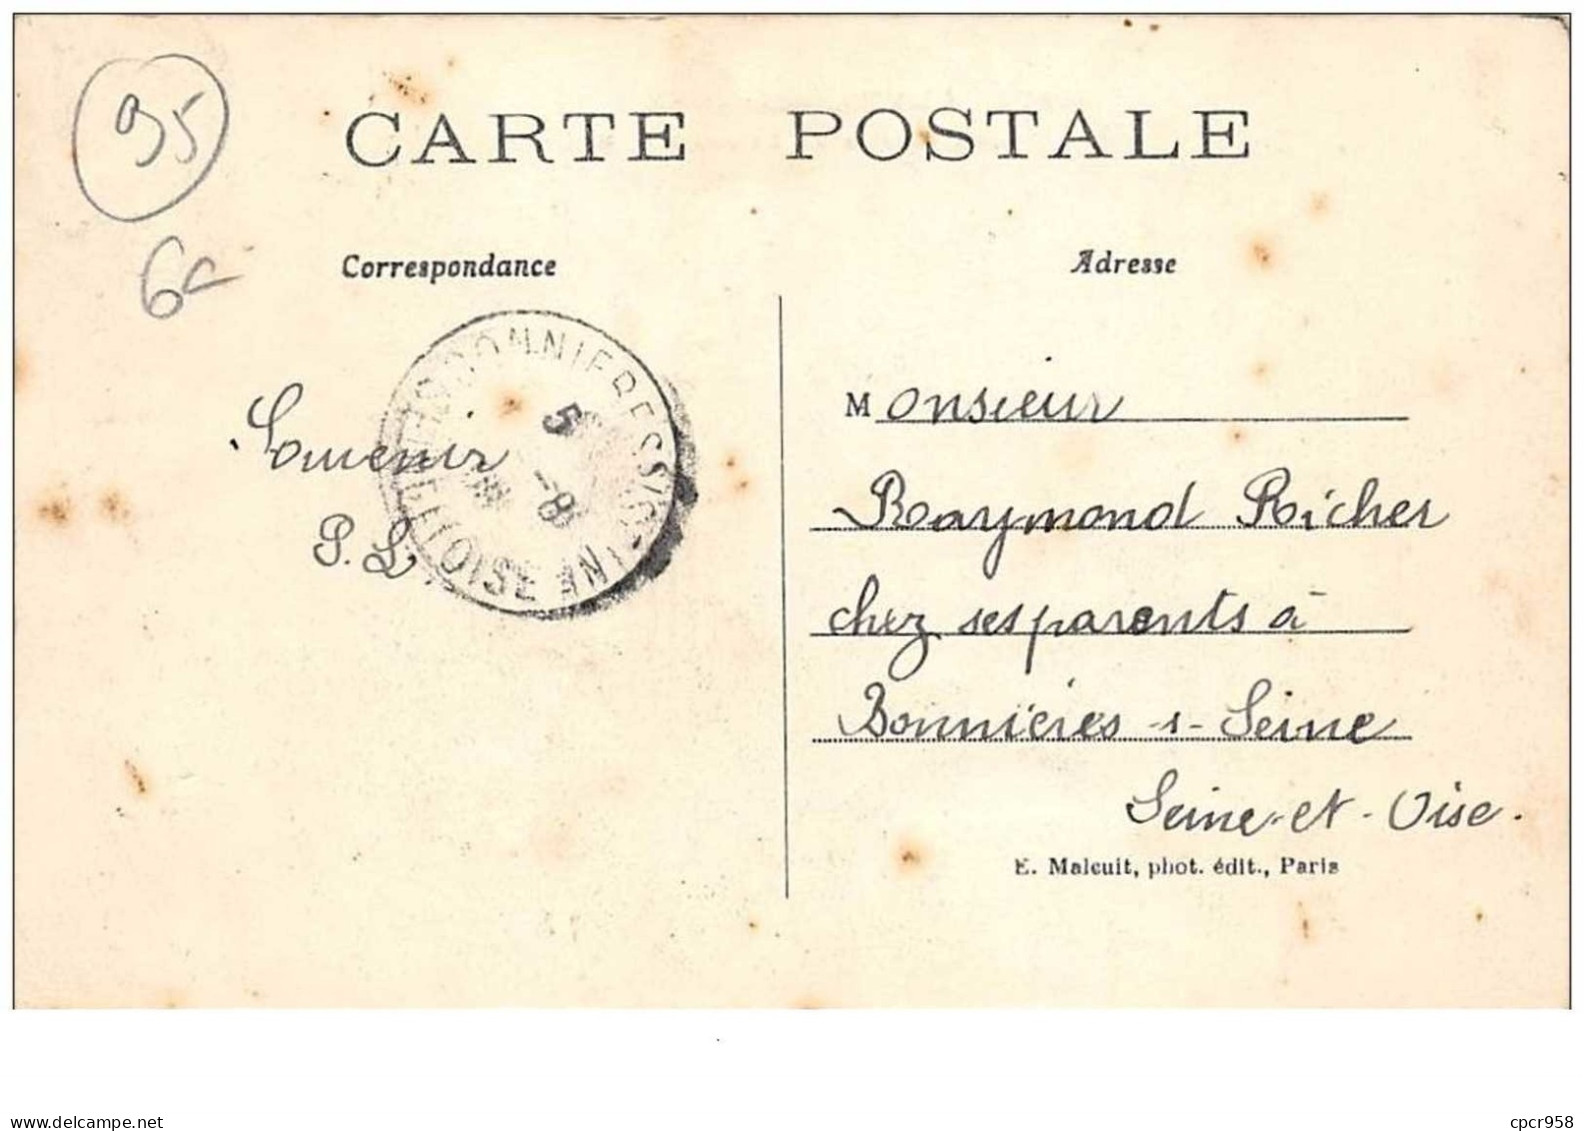 95
CARTE POSTALE
6
Correspondance
Adresse
BONNIERES S SEINE
ET OISE
5 -8
Souvenir
P. L.
Monsieur
Raymond Richer
chez ses parents à
Bonnières -s- Seine
Seine-et-Oise.
E. Malcuit, phot. édit., Paris
www.delcampe.net
cpcr958